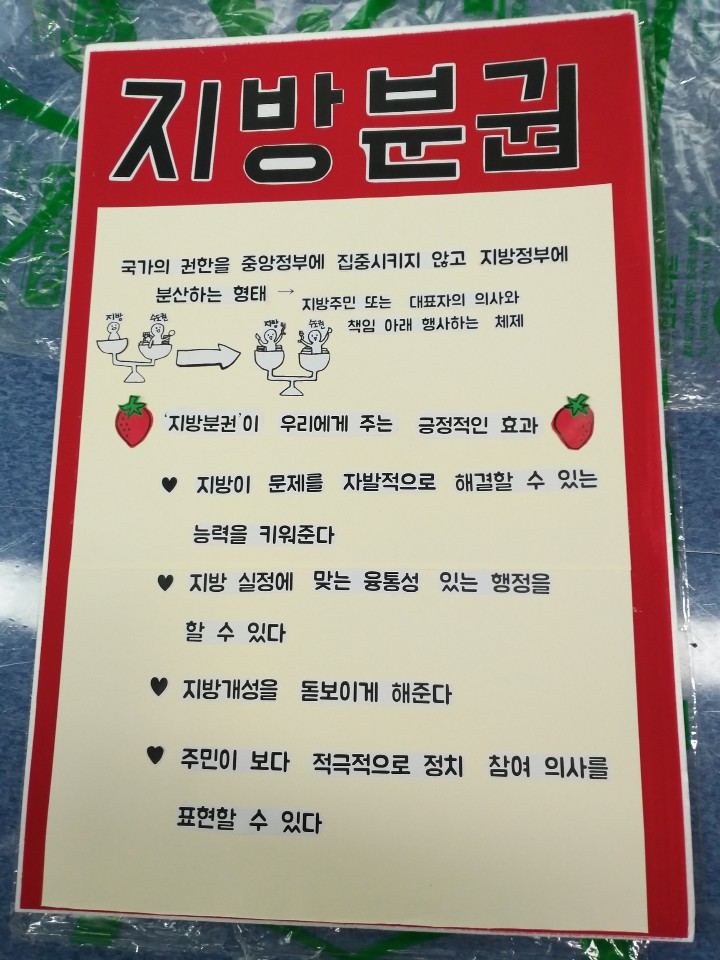 지방분권
국가의 권한을 중앙정부에 집중시키지 않고 지방정부에
분산하는 형태 → 지방주민 또는 대표자의 의사와
책임 아래 행사하는 체제
지방 수도권
지방 수도권
'지방분권'이 우리에게 주는 긍정적인 효과
♥ 지방이 문제를 자발적으로 해결할 수 있는
능력을 키워준다
♥ 지방 실정에 맞는 융통성 있는 행정을
할 수 있다
♥ 지방개성을 돋보이게 해준다
♥ 주민이 보다 적극적으로 정치 참여 의사를
표현할 수 있다